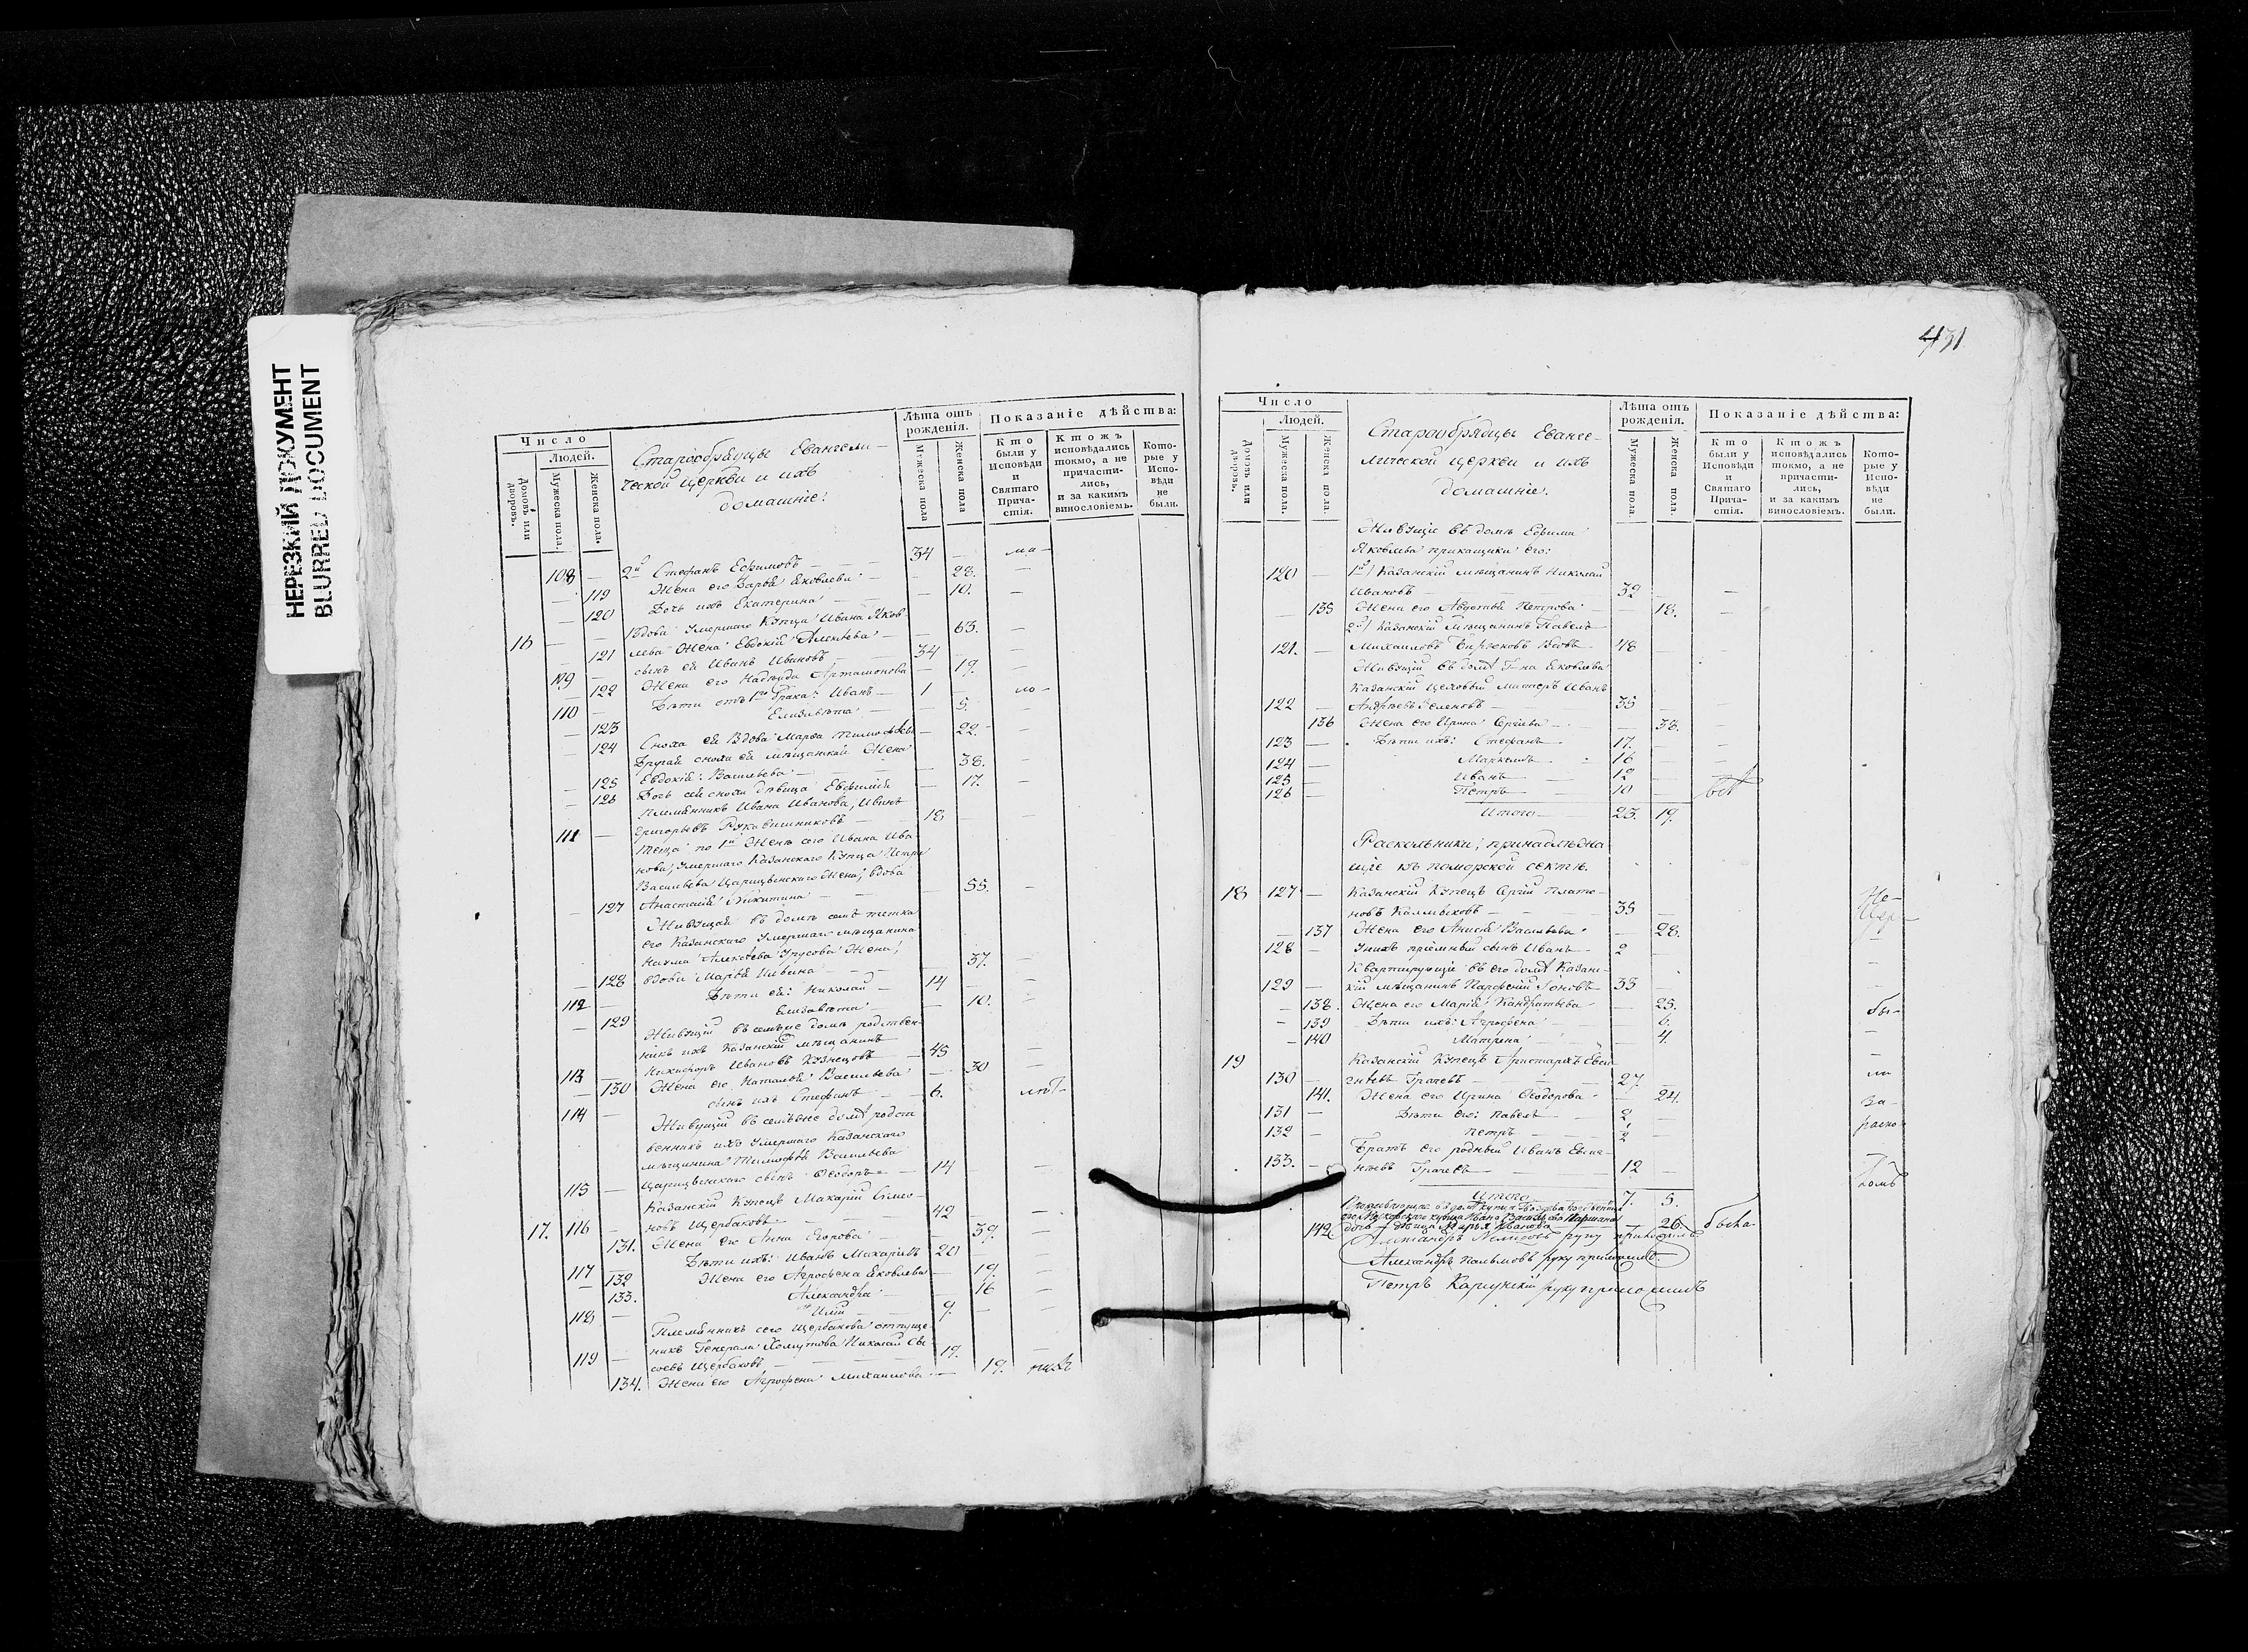 НЕРЕЗКИЙ ДОКУМЕНТ
BLURRED DOCUMENT
Число
Людей.
Домовъ или дворовъ.
Мужеска пола.
Женска пола.
Старообрядцы Евангели-
ческой церкви и ихъ
домашніе:
Лѣта отъ рожденія.
Мужеска пола
Женска пола
Показаніе дѣйства:
Кто были у Исповѣди и Святаго Причастія.
Ктожъ исповѣдались токмо, а не причастились, и за какимъ винословіемъ.
Которые у Исповѣди не были.
108 — 2й Стефанъ Ефимовъ — 34
— 119 Жена его Варвара Яковлева — 28.
— 120 Дочь ихъ Екатерина — 10.
16 Вдова умершаго Купца Ивана Яков
— 121 лева Жена Евдокія Алексѣева — 63.
109 — сынъ ея Иванъ Ивановъ 34
— 122 Жена его Надежда Артамонова — 19.
110 — Дѣти отъ 1го брака: Иванъ — 1
— 123 Елизавета — 5.
— 124 Сноха ея Вдова Марѳа Тимофѣева — 22.
Другая сноха ея мѣщанская Жена
— 125 Евдокія Васильева — 38.
— 126 Дочь сей снохи дѣвица Евфимія 17.
Племянникъ Ивана Иванова, Иванъ
111 — Григорьевъ Рукавишниковъ — 18
Теща по 1й Женѣ сего Ивана Ива
нова, умершаго Казанскаго Купца Петра
Васильева Царицынскаго Жена, вдова
— 127 Анастасія Никитина — 55.
Живущая въ домѣ семъ тетка
его Казанскаго умершаго мѣщанина
Наума Алексѣева Урусова Жена,
— 128 вдова Марья Ильина — 37.
112 — Дѣти ея: Николай — 14
— 129 Елизавета — 10.
Живущій въ семъже домѣ родствен-
никъ ихъ Казанскій мѣщанинъ
113 — Никифоръ Ивановъ Кузнецовъ 45
— 130 Жена его Наталья Васильева — 30
114 — сынъ ихъ Стефанъ — 6.
Живущій въ семъже домѣ родст
венникъ ихъ умершаго Казанскаго
мѣщанина Тимофѣя Васильева
115 — Царицынскаго сынъ Ѳеодоръ — 14
Казанскій Купецъ Макарій Симео
17. 116 — новъ Щербаковъ — 42
131. Жена его Анна Егорова — 39.
117 Дѣти ихъ: Иванъ Макаріевъ 20
— 132 Жена его Агрофена Яковлева — 19.
133. Александра — 16
118 — Илія — 9.
Племянникъ сего Щербакова отпуще
никъ Генерала Хомутова Николай Сы
119 — соевъ Щербаковъ — 19.
134. Жена его Агрофена Михаилова — 19.
431
Число
Людей.
Домовъ или дворовъ.
Мужеска пола.
Женска пола.
Старообрядцы Еванге-
лической церкви и ихъ
домашніе.
Лѣта отъ рожденія.
Мужеска пола.
Женска пола.
Показаніе дѣйства:
Кто были у Исповѣди и Святаго Причастія.
Ктожъ исповѣдались токмо, а не причастились, и за какимъ винословіемъ.
Которые у Исповѣди не были.
Живущіе въ домѣ Ефима
Яковлева прикащики его:
120 — 1й) Казанскій мѣщанинъ Николай
Ивановъ — 32
135 Жена его Авдотья Петрова — 18.
2й) Казанскій мѣщанинъ Павелъ
121. — Михаиловъ вдовъ 48
Живущій въ домѣ Г-на Яковлева
Казанскій цеховый мастеръ Иванъ
122 — Андрѣевъ — 35
136 Жена его Ирина Сергѣева — 38.
123 — Дѣти ихъ: Стефанъ 17.
124 — Маркелъ 16
125 — Иванъ 12
126 — Петръ 10
Итого — 23. 19.
Раскольники, принадлежа
щіе къ поморской сектѣ.
18 127 — Казанскій Купецъ Сергій Плато-
новъ Калмыковъ — 35
— 137 Жена его Анисья Васильева — 28.
128 — У нихъ пріемный сынъ Иванъ 2
Квартирующіе въ его домѣ Казан-
129 — скій мѣщанинъ Парфеній Іоновъ 33
— 138. Жена его Марія Кандратьева 25.
— 139 Дѣти ихъ: Агрофена — 6.
— 140 Матрена — 4.
19 Казанскій Купецъ Аристархъ Евси
130 — гнѣевъ Грачевъ — 27.
141. Жена его Ирина Ѳеодорова — 24.
131 — Дѣти его: Павелъ — 2
132 — Петръ — ½
Братъ его родный Иванъ Евсиг-
133. — нѣевъ Грачевъ — 12
Итого 7. 5.
142 дочь дѣвица Марья Иванова — 26. была
Александръ руку приложилъ
Александръ Пальмовъ руку приложилъ.
Петръ руку приложилъ